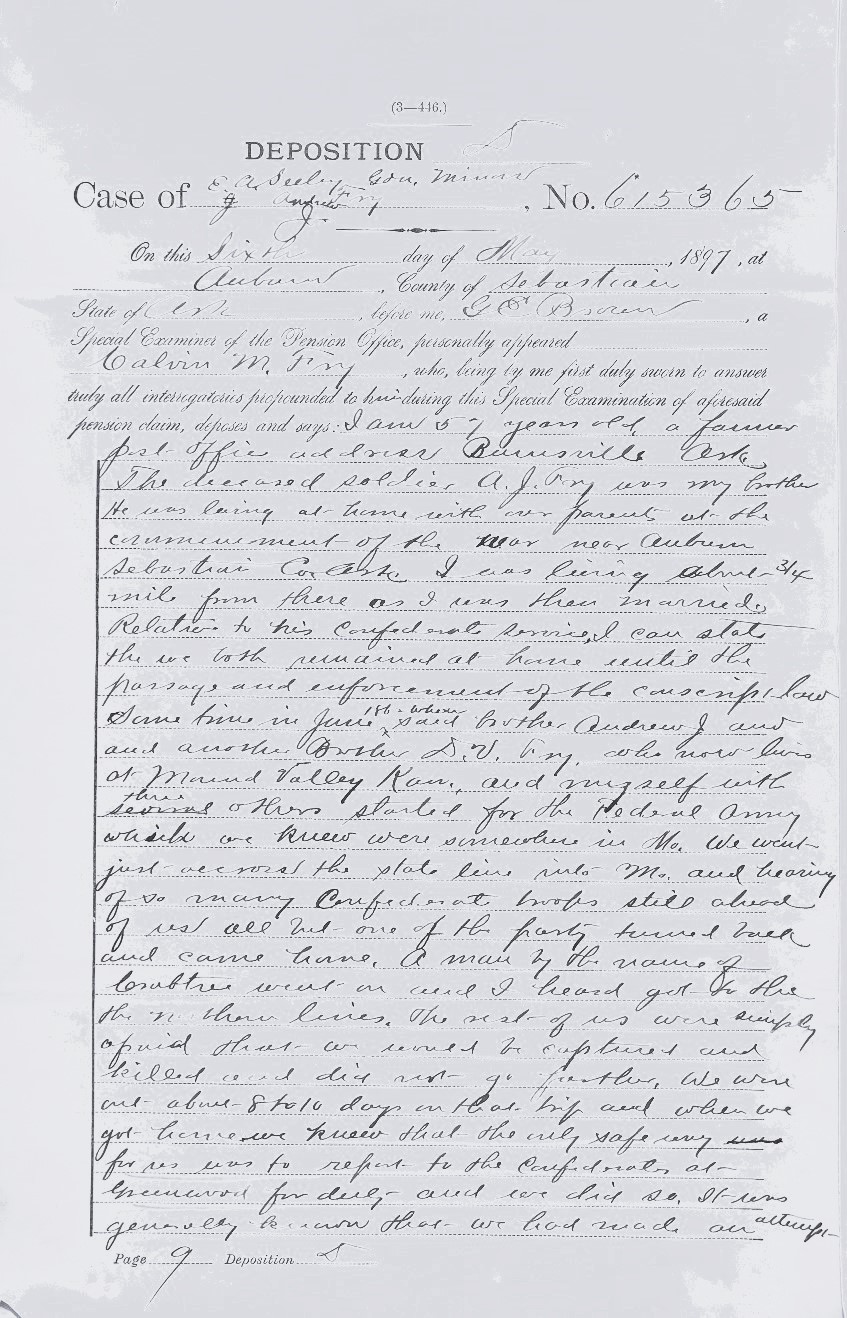 (3—446.)
DEPOSITION
Case of E. A. Seeley, Gdn, Minors, No. 615365
of Andrew J. Fry
On this Sixth day of May, 1897, at
Auburn, County of Sebastian
State of Ark, before me, G E Brown, a
Special Examiner of the Pension Office, personally appeared
Calvin M. Fry, who, being by me first duly sworn to answer
truly all interrogatories propounded to him during this Special Examination of aforesaid
pension claim, deposes and says: I am 57 years old, a farmer
post office address Burnsville Ark
The deceased soldier, A. J. Fry was my brother
He was living at home with our parents at the
commencement of the war near Auburn
Sebastian Co. Ark. I was living about 3/4
mile from there as I was then married.
Relative to his Confederate service, I can state
the we both remained at home until the
passage and enforcement of the conscript law
Some time in June 186- when said brother Andrew J and
and another Brother D. V. Fry, who now lives
at Mound Valley Kan., and myself with
three
several others started for the Federal Army
which we knew were somewhere in Mo. We went
just accross the state line into Mo. and hearing
of so many Confederate troops still ahead
of us all but one of the party turned back
and came home. A man by the name of
Crabtree went on and I heard got to the
the northern lines. The rest of us were simply
afraid that we would be captured and
killed and did not go farther. We were
out about 8 to 10 days on that trip and when we
got home we knew that the only safe way was
for us was to report to the Confederates at
Greenwood for duty and we did so. It was
generally known that we had made an attempt
Page 9 Deposition